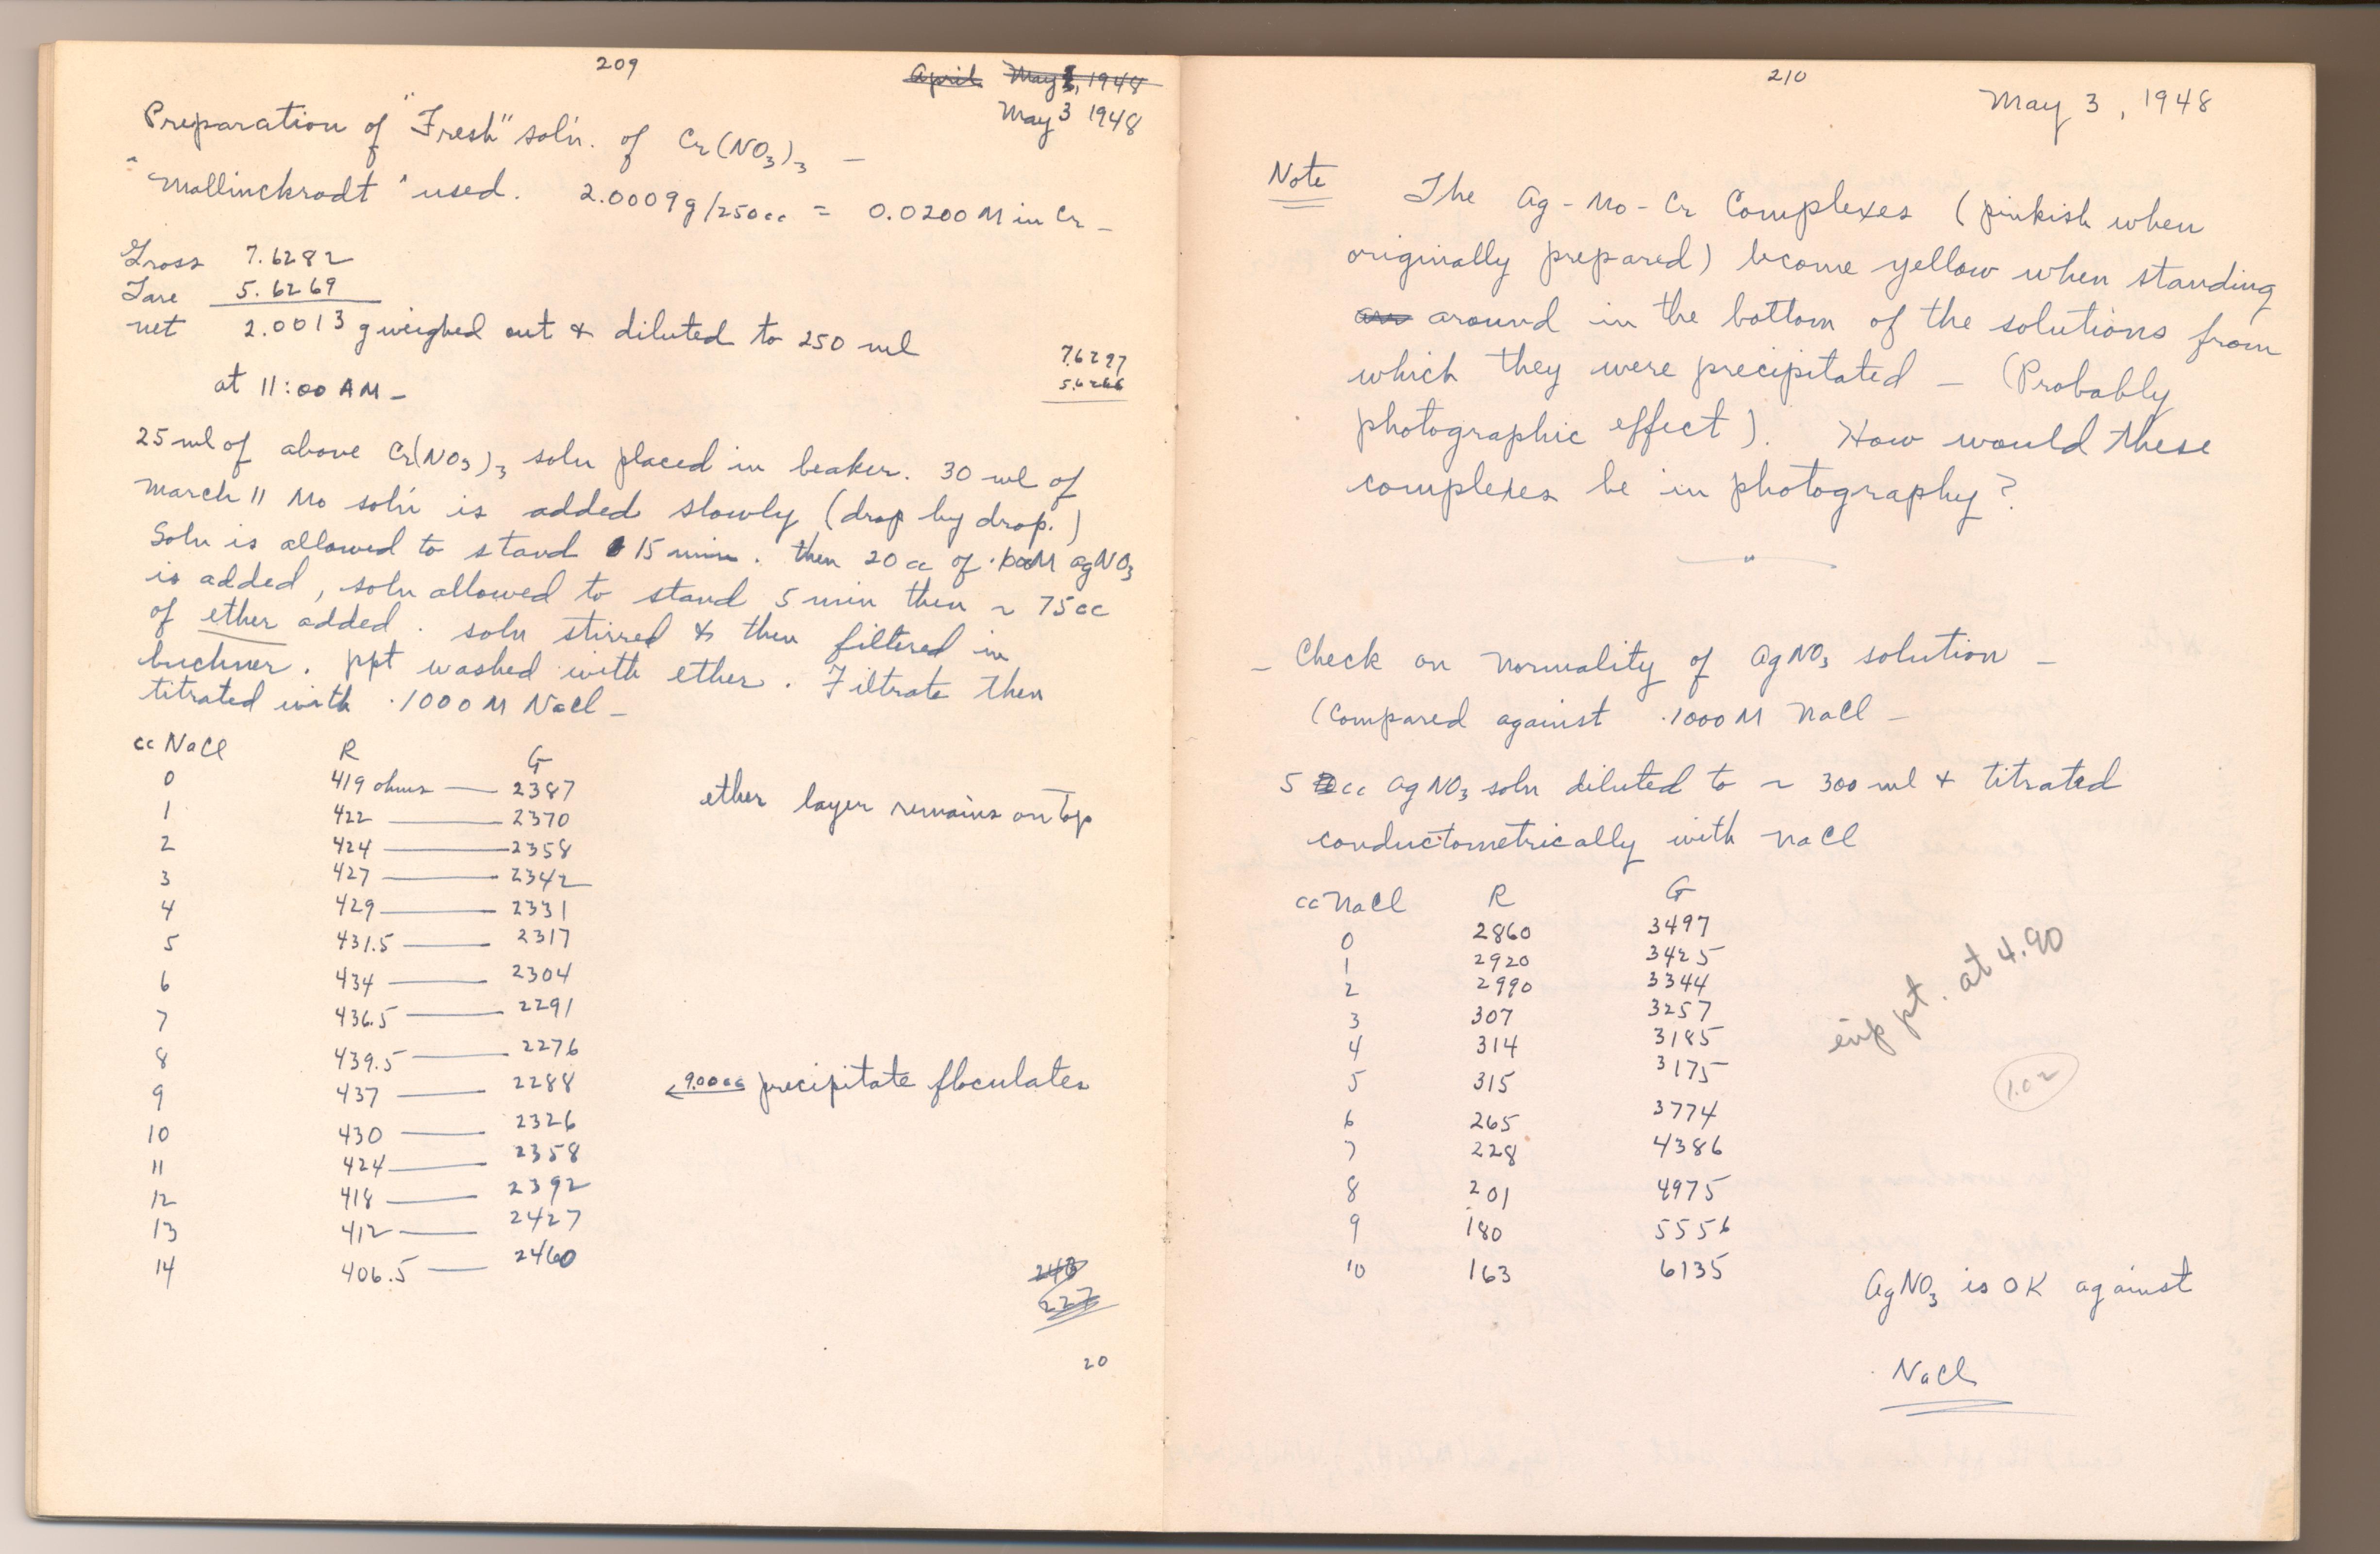 209
April May 1, 1948
May 3 1948
Preparation of "Fresh" soln. of Cr(NO3)3 —
"Mallinckrodt" used. 2.0009g/250cc = 0.0200 M in Cr —
Gross 7.6282
Tare 5.6269
net 2.0013 g weighed out & diluted to 250 ml
at 11:00 AM —
7.6277
5.6266
25 ml of above Cr(NO3)3 soln placed in beaker. 30 ml of
March 11 Mo soln is added slowly (drop by drop.)
Soln is allowed to stand 15 min. then 20 cc of AgNO3
is added, soln allowed to stand 5 min then ~ 75cc
of ether added. soln stirred & then filtered in
buchner. ppt washed with ether. Filtrate then
titrated with .1000 M NaCl —
cc NaCl R G
0 419 ohms — 2387
ether layer remains on top
1 422 — 2370
2 424 — 2358
3 427 — 2342
4 429 — 2331
5 431.5 — 2317
6 434 — 2304
7 436.5 — 2291
8 439.5 — 2276
9 437 — 2288
← 9.00cc precipitate floculates
10 430 — 2326
11 424 — 2358
12 418 — 2392
13 412 — 2427
14 406.5 — 2460
227
20
210
May 3, 1948
Note The Ag-Mo-Cr Complexes (pinkish when
originally prepared) become yellow when standing
around in the bottom of the solutions from
which they were precipitated — (Probably
photographic effect). How would these
complexes be in photography?
— Check on normality of AgNO3 solution —
(Compared against .1000 M NaCl —
5 cc AgNO3 soln diluted to ~ 300 ml & titrated
conductometrically with NaCl
cc NaCl R G
0 2860 3497
1 2920 3425
2 2990 3344
3 307 3257
4 314 3185
5 315 3175
6 265 3774
7 228 4386
8 201 4975
9 180 5556
10 163 6135
pt. at 4.90
1.02
AgNO3 is OK against
NaCl